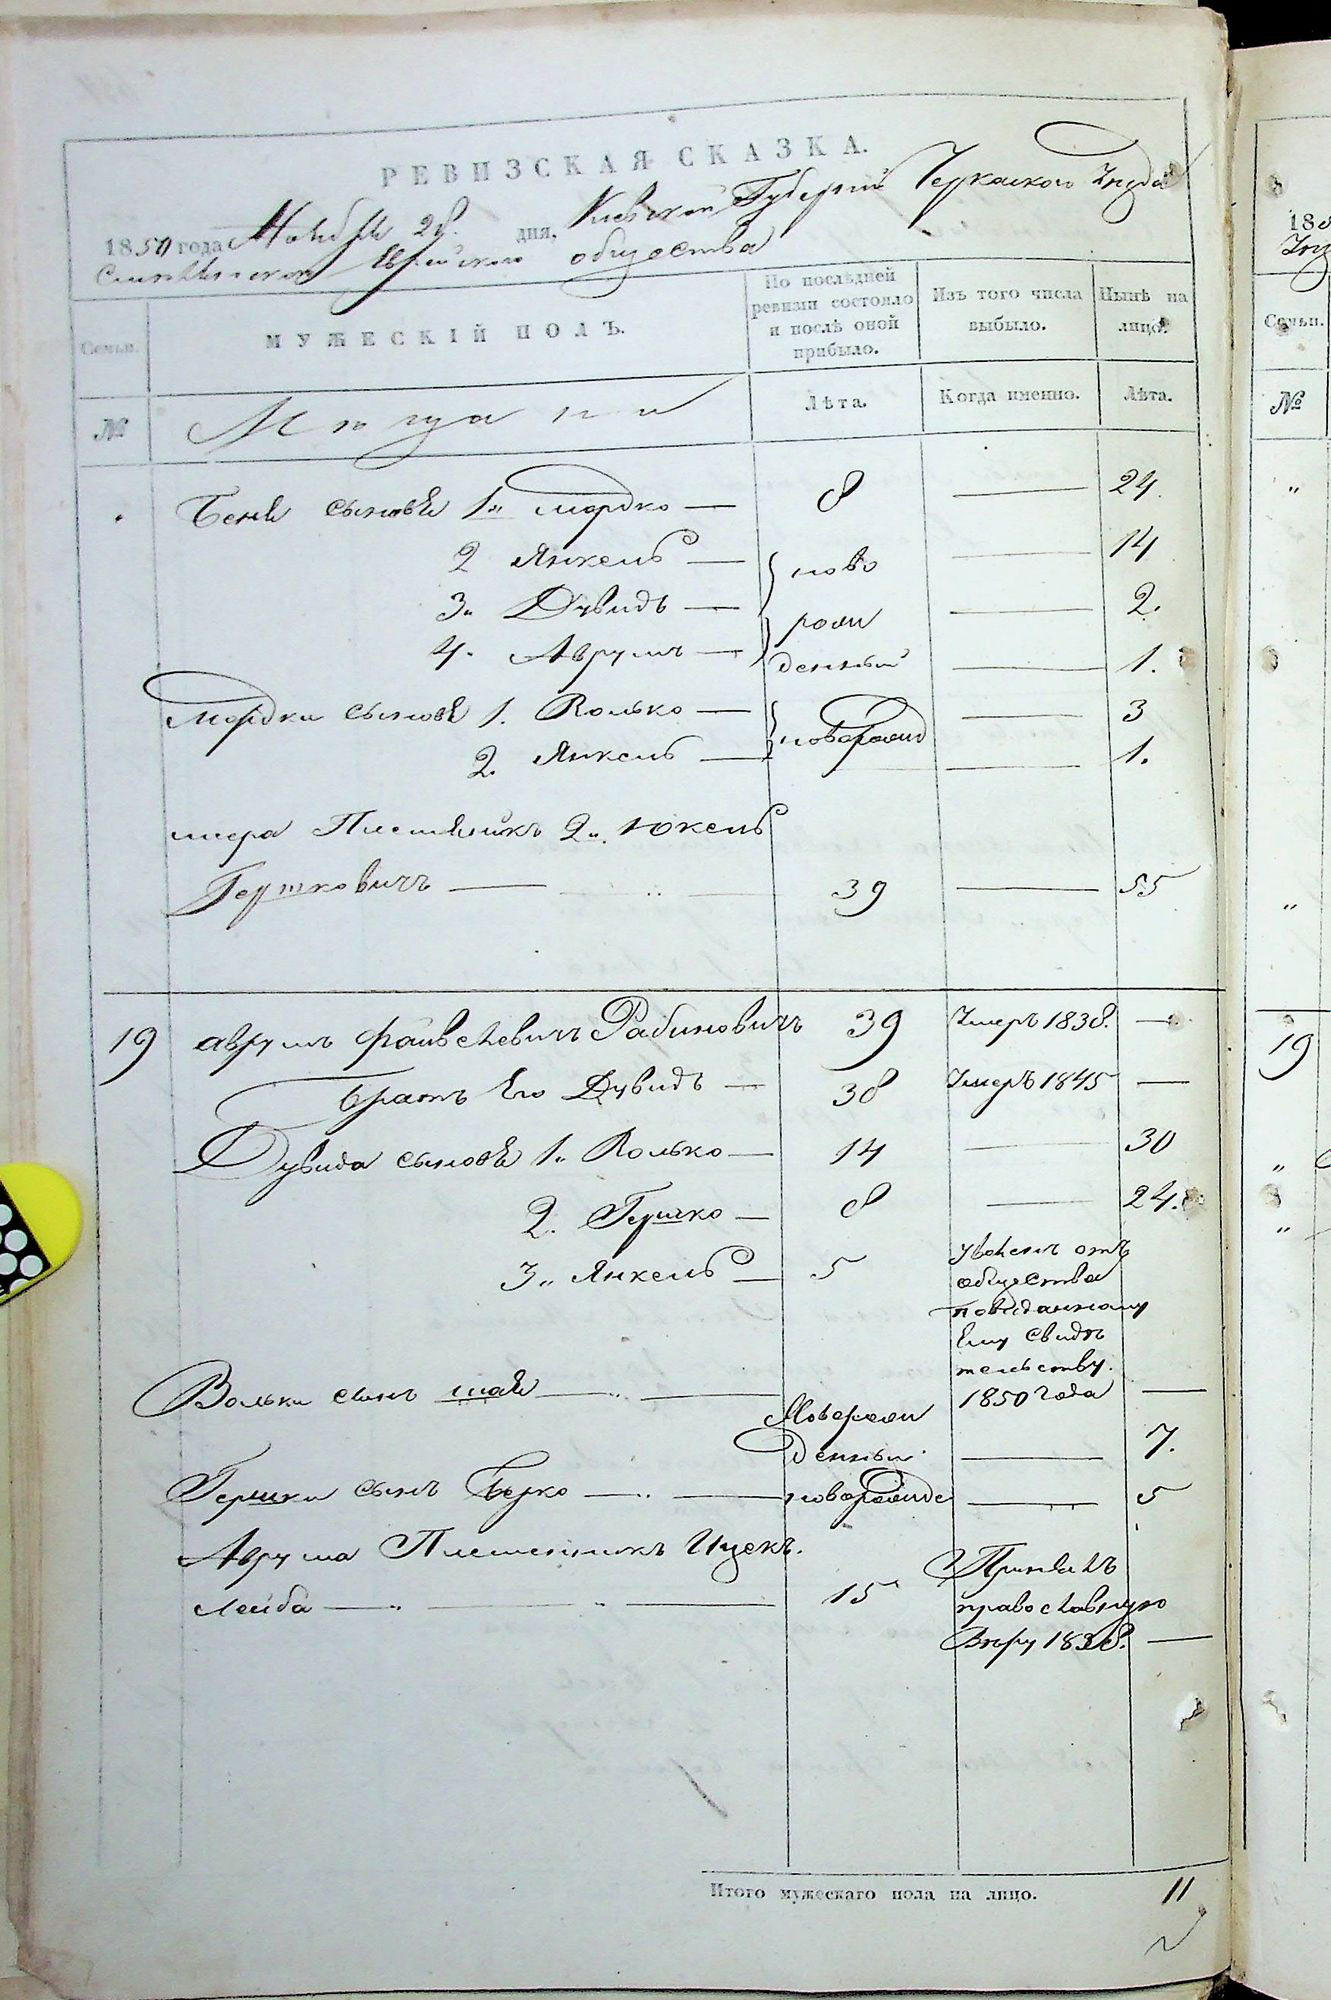 РЕВИЗСКАЯ СКАЗКА.
1850 года Ноября 28. дня, Киевской Губернии Черкаского Уезда
Еврейского общества
Семьи.
МУЖЕСКІЙ ПОЛЪ.
По послѣдней ревизіи состояло и послѣ оной прибыло.
Изъ того числа выбыло.
Нынѣ на лицо.
№
Мещани
Лѣта.
Когда именно.
Лѣта.
Бени сыновя 1 Мордко — 8 — 24
2 Янкель — ново — 14
3 Дувидъ — рож — 2.
4. Аврумъ — денный — 1.
Мордки сыновя 1. Волько — новорожд — 3
2. Янкель — — 1.
Племянникъ 2 Юкель
Гершковичъ — 39 — 55
19 Аврумъ Файвелевичъ Рабиновичъ 39 Умеръ 1838. —
Братъ Его Дувидъ — 38 Умеръ 1845 —
Дувида сыновя 1. Волько — 14 — 30
2. Гершко — 8 — 24.
3. Янкель — 5 уволенъ отъ
общества
повыданному
Ему свидѣ
тельству.
1850 года —
Вольки сынъ Шая — Новорож
денный — 7.
Гершки сынъ Берко — новорожде — 5
Аврума Племенникъ Ицекъ.
Лейба — 15 Принялъ
православную
Вѣру 1838. —
Итого мужескаго пола на лицо. 11
19
№
Семьи.